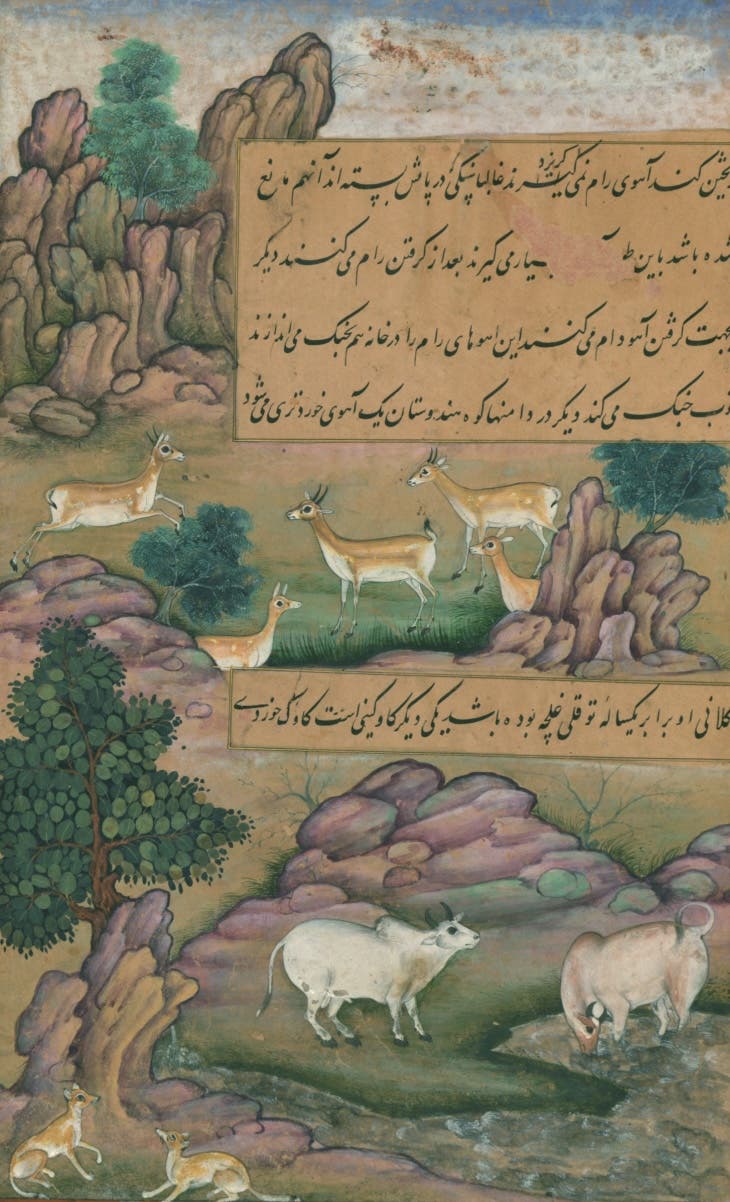 کند آهوی رام نمی گریزد غالبا در پاش بسته اند آنهم مانع
شده باشد باین بسیار می گیرند بعد از گرفتن رام می کنند دیگر
بجهت گرفتن آهو دام می کنند این اهوهای رام را در خانه هم بجنگ می اندازند
خوب جنک می کند دیگر در دامنهای کوه هندوستان یک آهوی خوردتری می شود
کلانی او برابر یکساله توقلی غلچه بوده باشد یکی دیگر کاو کینی است کاو خوردی